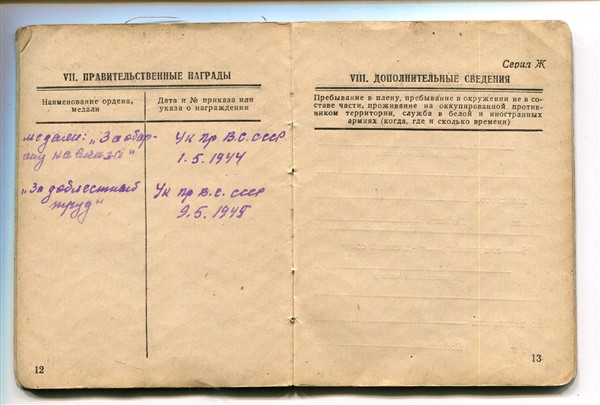 VII. ПРАВИТЕЛЬСТВЕННЫЕ НАГРАДЫ
Наименование ордена,
медали
Дата и № приказа или
указа о награждении
медали: „За обор-
ону кавказа“
Ук Пр В.С. СССР
1.5.1944
„За доблестный
труд“
Ук Пр В.С. СССР
9.5.1945
12
Серия Ж
VIII. ДОПОЛНИТЕЛЬНЫЕ СВЕДЕНИЯ
Пребывание в плену, пребывание в окружении не в со-
ставе части, проживание на оккупированной против-
ником территории, служба в белой и иностранных
армиях (когда, где и сколько времени)
13